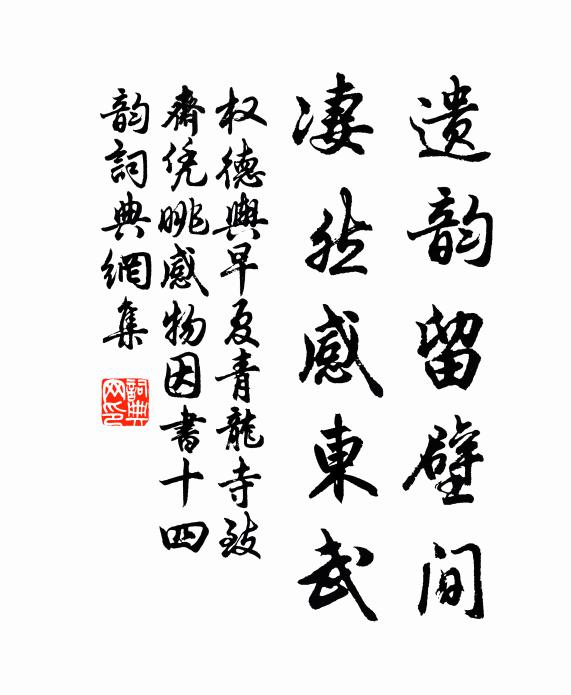 遗韵留壁间
凄然感东武
权德舆早夏青龍寺致
齋凭眺感物因書十四
韵詞典網集
詞典网印